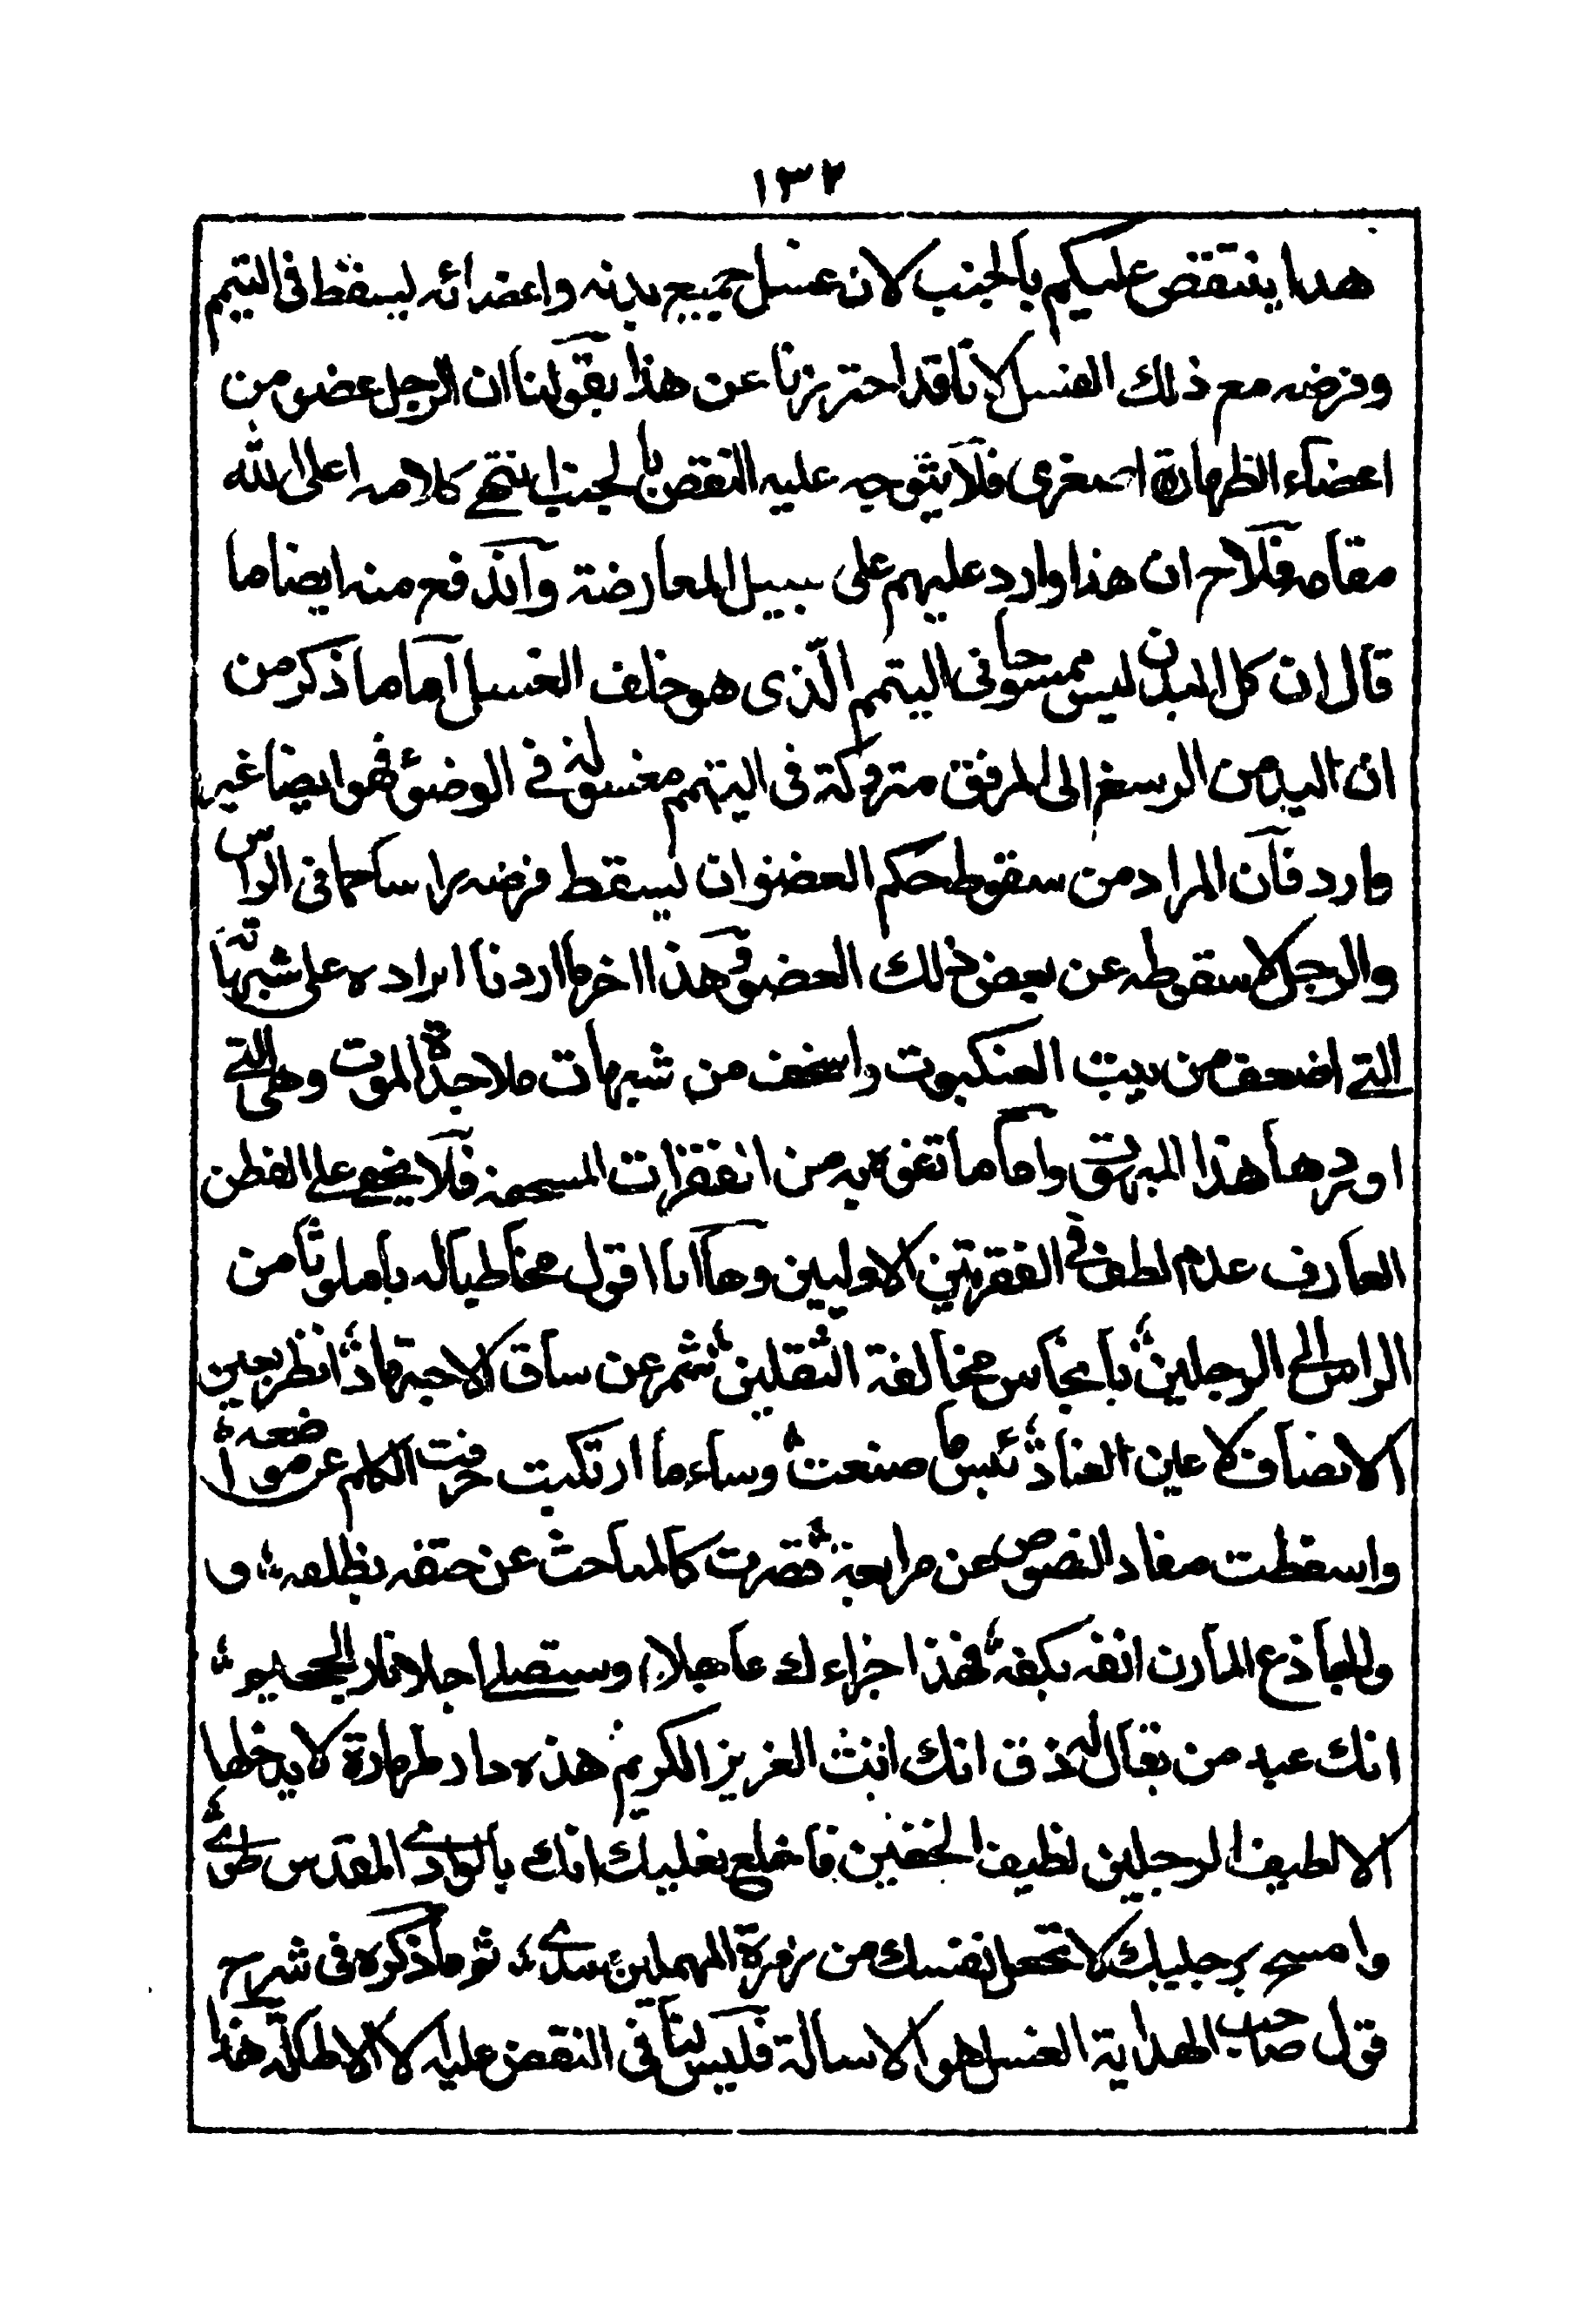 ١٣٢
هذا ينتقض عليكم بالجنب لان غسل جميع بدنه واعضائه يسقط فى التيمم
وفرضه مع ذلك الغسل لانا قد احترزنا عن هذا بقولنا ان الرجل عضو من
اعضاء الطهارة الصغرى فلا يتوجه عليه النقض بالجنب انتهى كلامه اعلى الله
مقامه فلاح ان هذا وارد عليهم على سبيل المعارضة واندفع منه ايضا ما
قال ان كل البدن ليس ممسوحا فى التيمم الذى هو خلف الغسل اما ما ذكر من
ان اليد من الرسغ الى المرفق متروكة فى التيمم مغسولة فى الوضوء فهو ايضا غير
وارد فان المراد من سقوط حكم العضو ان يسقط فرضه راسا كما فى الراس
والرجل لا سقوطه عن بعض ذلك العضو وهذا اخر ما اردنا ايراده على شبهاته
التى اضعف من بيت العنكبوت واسخف من شبهات ملاحدة الموت وهى التى
اوردها هذا المبهوت واما ما تفوه به من الفقرات المسجعة فلا يخفى على الفطن
العارف عدم لطف فى الفقرتين الاوليين وها انا اقول مخاطبا له يا ملوثا من
الراس الى الرجلين يا بنجاس مخالفة الثقلين شمر عن ساق الاجتهاد انظر بعين
الانصاف لا عين العناد بئس ما صنعت وساء ما ارتكبت حرفت الكلم عن مواضعه
واسقطت مفاد النصوص عن مرابعة فصرت كالباحث عن حتفه بظلفه و
والجاذع المارن انفه بكفه فهذا جزاءك عاجلا وستصلى اجلا نار الجحيم
انك عبد من يقال له ذق انك انت العزيز الكريم هذه دار طهارة لا يدخلها
الا لطيف الرجلين نظيف الخفين فاخلع نعليك انك بالوادى المقدس طوى
وامسح برجليك لا تجعل نفسك من زمرة المهملين سدى ثم ما ذكره فى شرح
قول صاحب الهداية الغسل هو الاسالة فليس لنا فى النقض عليه الا الاطالة هذا